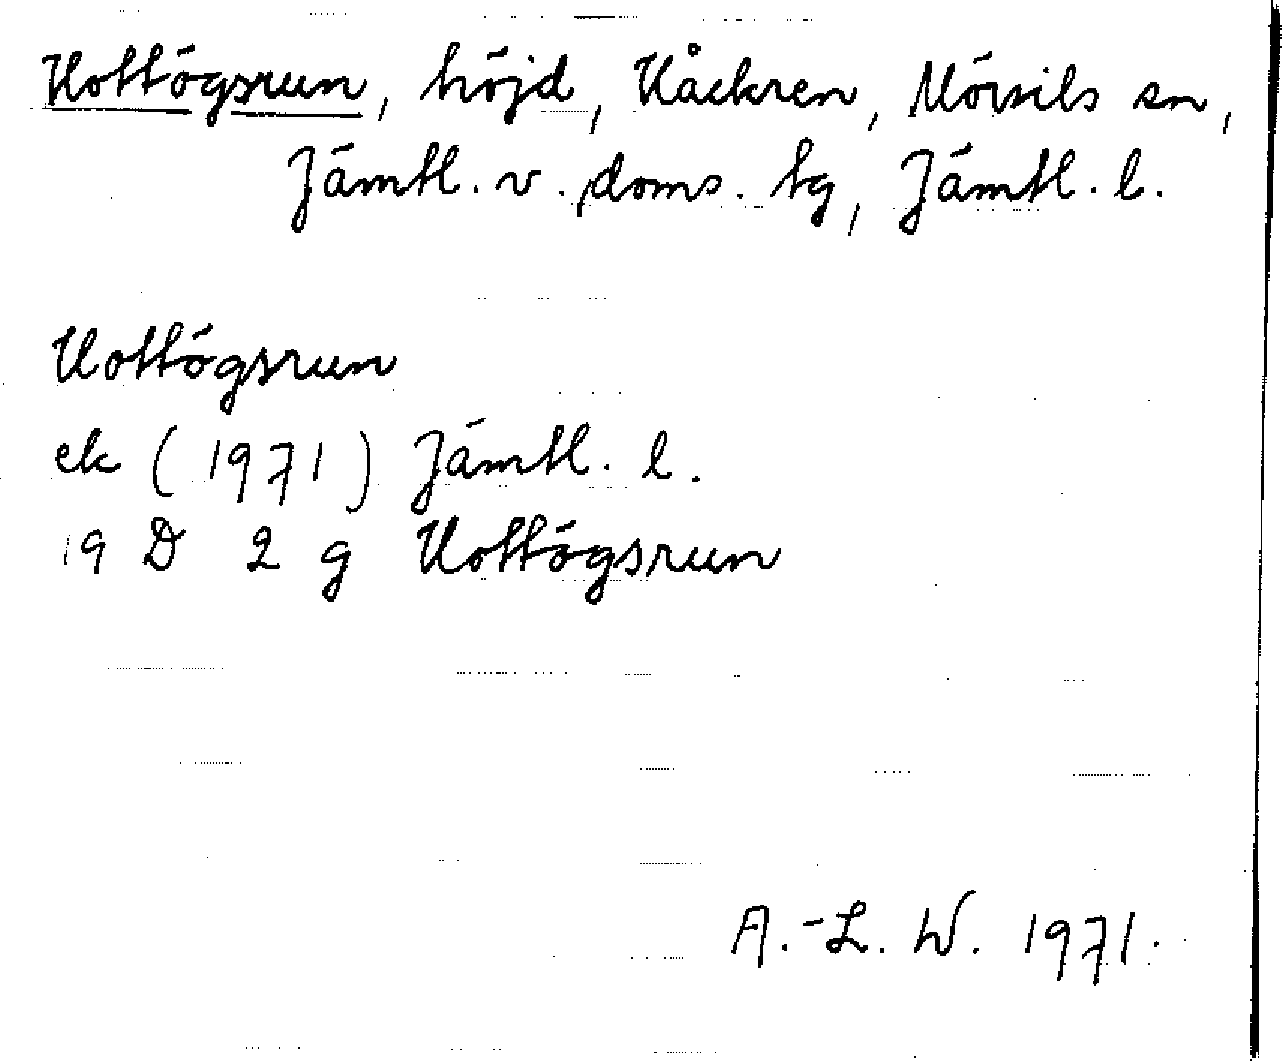 Kottögsrun, höjd, Kåckren, Mörsils sn,
Jämtl. v. doms. tg, Jämtl. l.
Kottögsrun
ek (1971) Jämtl. l.
19 D 2 g Kottögsrun
A.-L. W. 1971.